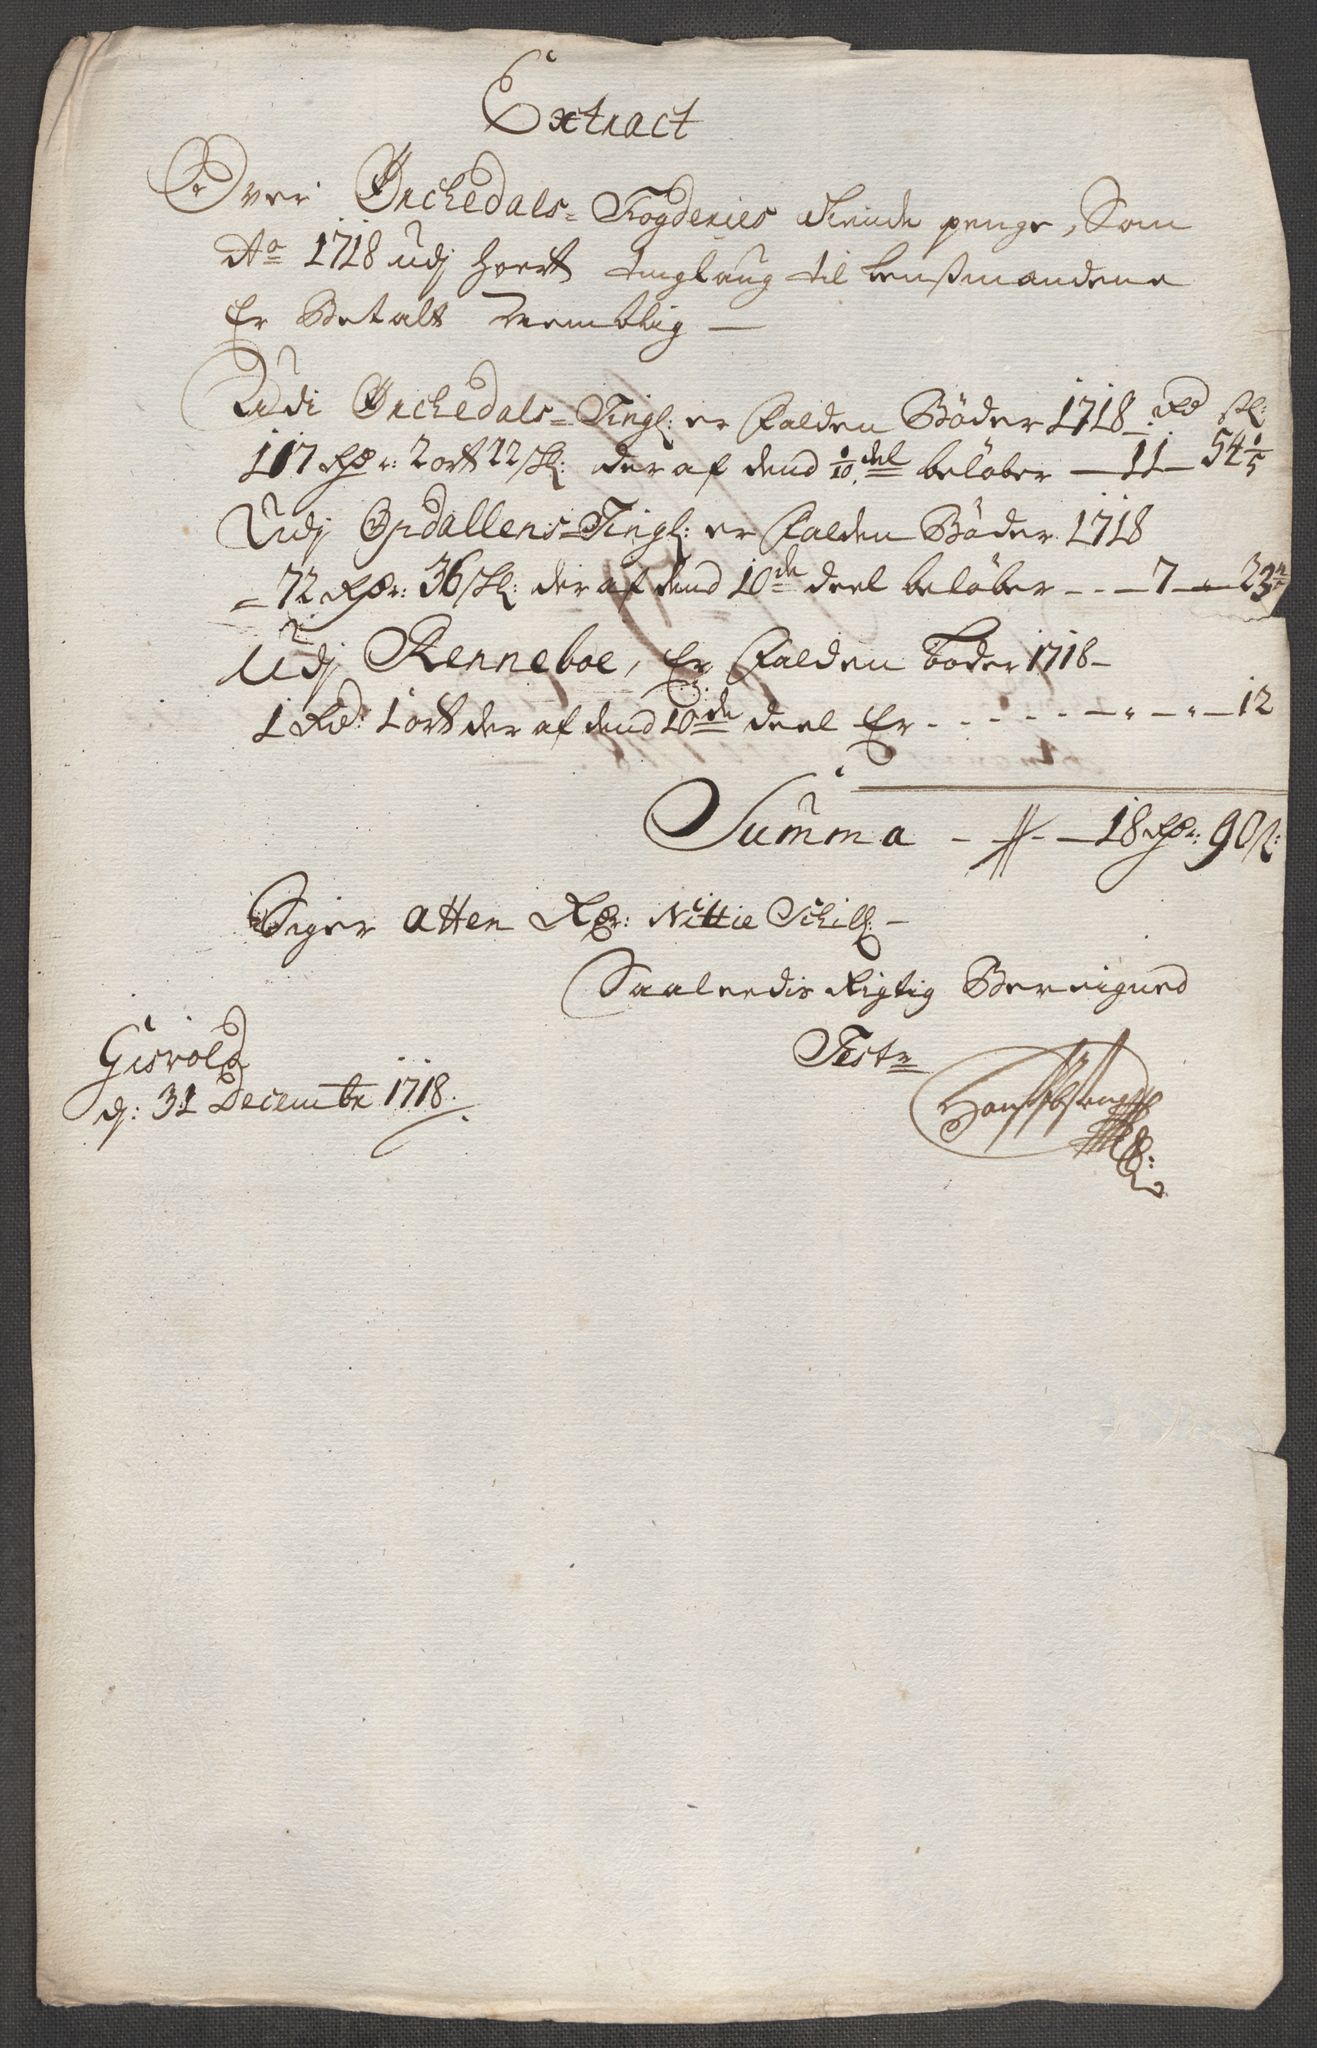 Extract
Over Orchedals-Fogderies tiende penge, Som
Ao 1718 udj hvert tinglaug til lensmandene
Er Betalt Nemblig —
Udi Orchedals-Tingl: er falden Bøder 1718. Rd sk:
117 Rdr: 2 ort 22 sk: der af dend 1/10 del beløber — 11 — 54 1/5
Udj Opdallens-Tingl: er falden Bøder 1718
- 72 Rdr: 36 sk: der af dend 10de deel beløber - - - 7 — 23
Udj Renneboe, Er falden bøder 1718 -
1 Rd: 1 ort der af dend 10de deel Er - - - - - - 12
Summa - - - 18 Rdr: 90 s:
Siger atten Rdr: Nittie Schill: -
Saaleedis Rigtig Bereigned
Gisvold Test
d: 31 Decembr 1718. Hans